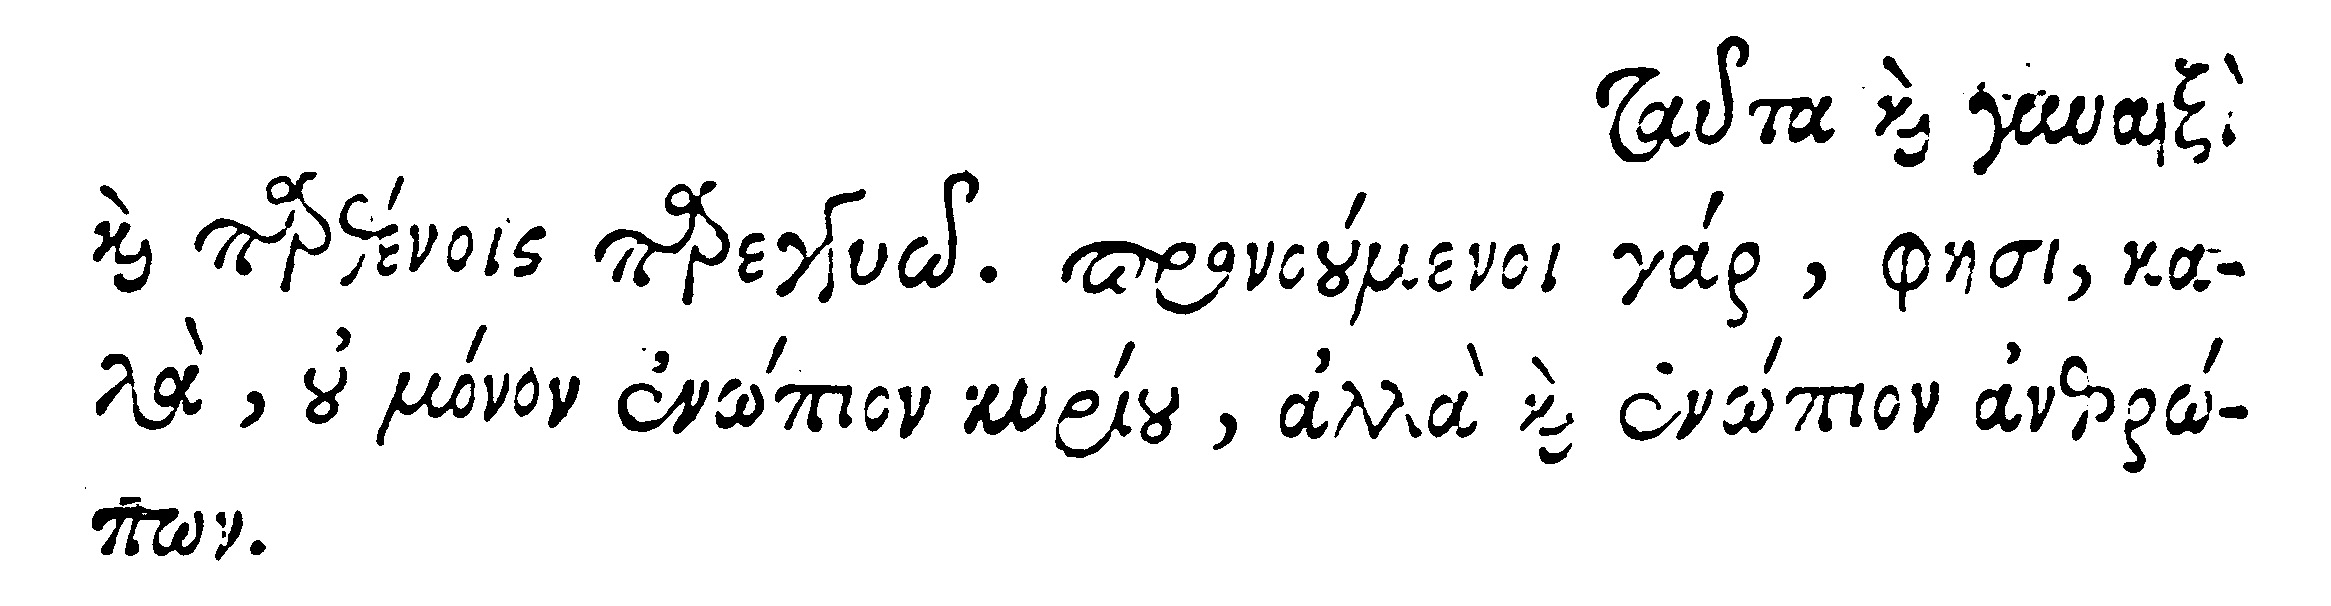 Ταῦτα καὶ γυναιξὶ
καὶ παρθένοις παρεγγυῶ. προνοούμενοι γάρ, φησι, κα-
λὰ, οὐ μόνον ἐνώπιον κυρίου, ἀλλὰ καὶ ἐνώπιον ἀνθρώ-
πων.